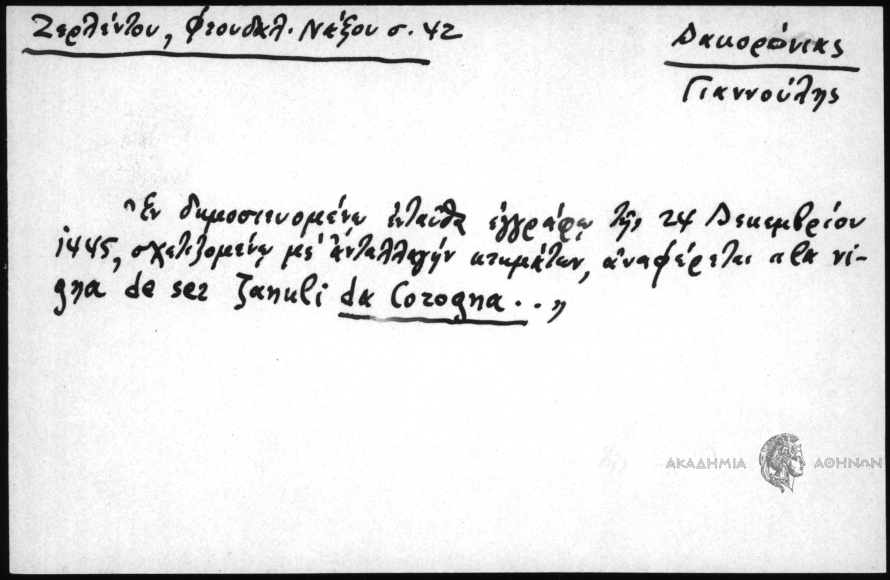 Ζερλέντου, Φεουδαλ. Νάξου σ. 42
Δακορώνιας
Γιαννούλης
Ἐν δημοσιευομένῳ ἐνταῦθα ἐγγράφῳ τῆς 24 Δεκεμβρίου
1445, σχετιζομένῳ μὲ ἀνταλλαγήν κτημάτων, ἀναφέρεται „la vi-
gna de ser Zanuli da Corogna..„
ΑΚΑΔΗΜΙΑ ΑΘΗΝΩΝ